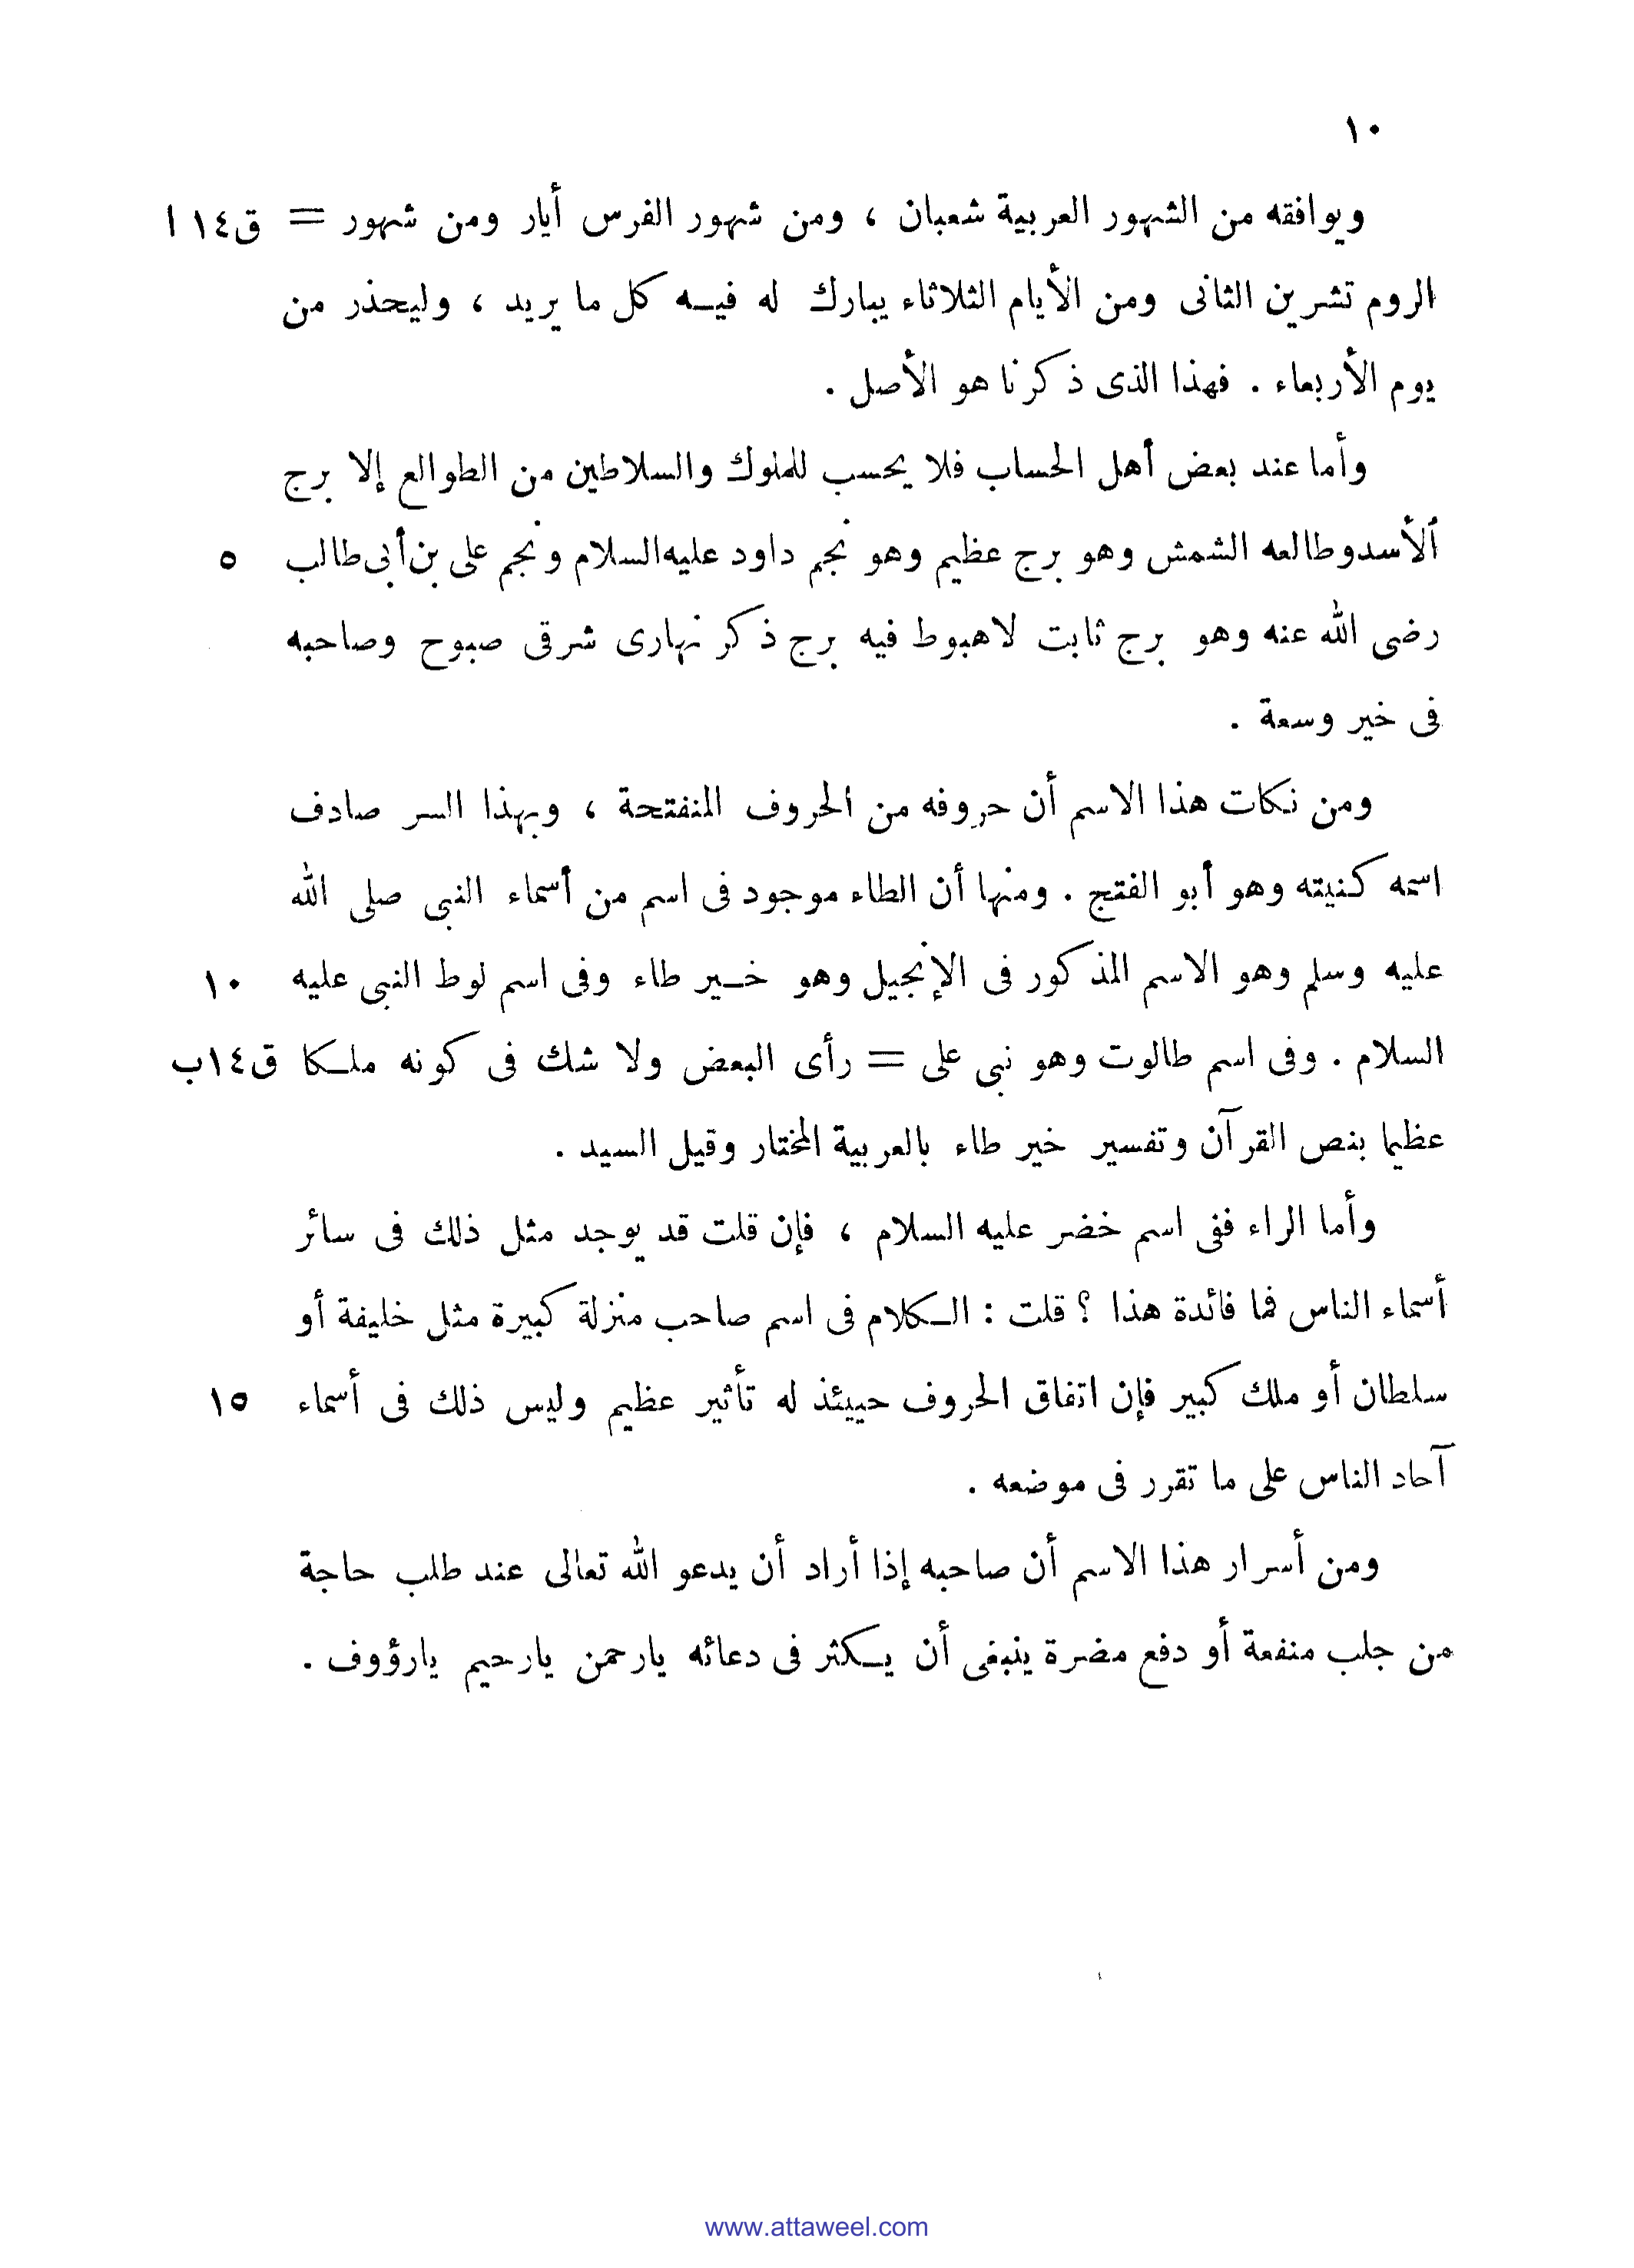 ١٠
ويوافقه من الشهور العربية شعبان ، ومن شهور الفرس أيار ومن شهور = ق١٤ ا
الروم تشرين الثانى ومن الأيام الثلاثاء يبارك له فيه كل ما يريد ، وليحذر من
يوم الأربعاء . فهذا الذى ذكرنا هو الأصل .
وأما عند بعض أهل الحساب فلا يحسب للملوك والسلاطين من الطوالع إلا برج
الأسد وطالعه الشمش وهو برج عظيم وهو نجم داود عليه السلام ونجم على بن أبى طالب ٥
رضى الله عنه وهو برج ثابت لاهبوط فيه برج ذكر نهارى شرقى صبوح وصاحبه
فى خير وسعة .
ومن نكات هذا الاسم أن حروفه من الحروف المنفتحة ، وبهذا السر صادف
اسمه كنيته وهو أبو الفتح . ومنها أن الطاء موجود فى اسم من أسماء النبى صلى الله
عليه وسلم وهو الاسم المذكور فى الإنجيل وهو خير طاء وفى اسم لوط النبى عليه ١٠
السلام . وفى اسم طالوت وهو نبى على = رأى البعض ولا شك فى كونه ملكا ق١٤ب
عظيما بنص القرآن وتفسير خير طاء بالعربية المختار وقيل السيد .
وأما الراء ففى اسم خضر عليه السلام ، فإن قلت قد يوجد مثل ذلك فى سائر
أسماء الناس فما فائدة هذا ؟ قلت : الكلام فى اسم صاحب منزلة كبيرة مثل خليفة أو
سلطان أو ملك كبير فإن اتفاق الحروف حييئذ له تأثير عظيم وليس ذلك فى أسماء ١٥
آحاد الناس على ما تقرر فى موضعه .
ومن أسرار هذا الاسم أن صاحبه إذا أراد أن يدعو الله تعالى عند طلب حاجة
من جلب منفعة أو دفع مضرة ينبغى أن يكثر فى دعائه يارحمن يارحيم يارؤوف .
www.attaweel.com